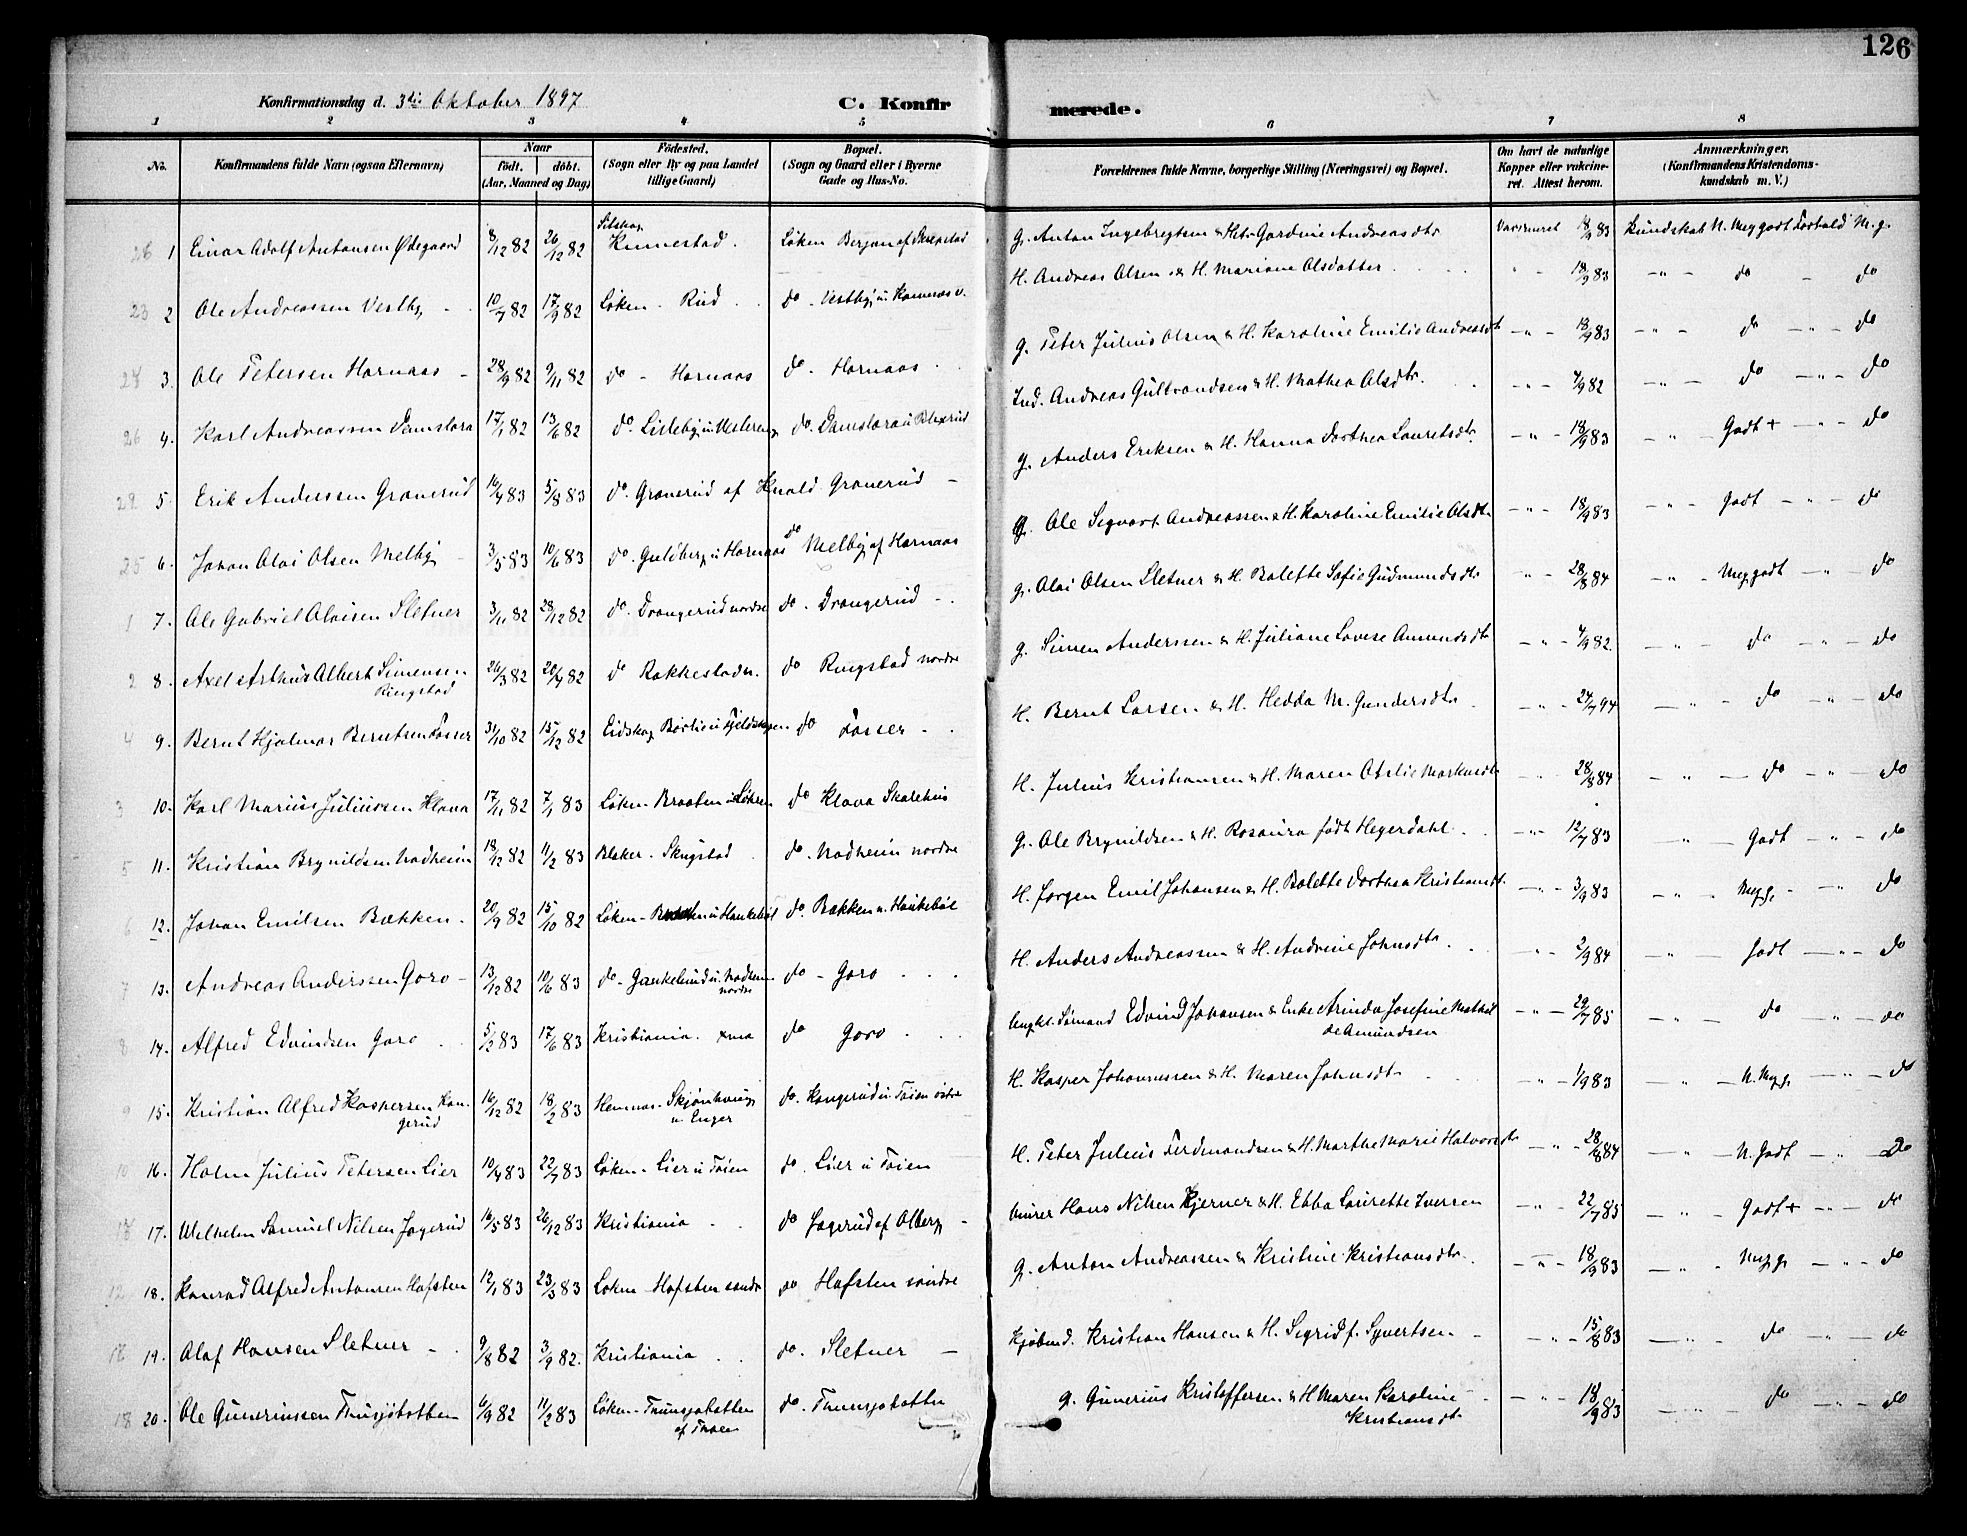 126
Konfirmationsdag d. 3die Oktober 1897 C. Konfirmerede.
1 2 3 4 5 6 7 8
No. Konfirmandens fulde Navn (ogsaa Efternavn) Naar födt. döbt. (Aar, Maaned og Dag) Födested. (Sogn eller By og paa Landet tillige Gaard) Bopæl. (Sogn og Gaard eller i Byerne Gade og Hus-No. Forældrenes fulde Navne, borgerlige Stilling (Næringsvei) og Bopæl. Om havt de naturlige Kopper eller vakcineret. Attest herom. Anmærkninger, (Konfirmandens Kristendomskundskab m. V.)
26 1 Einar Adolf Antonsen Ødegaard 8/12 82 26/12 82 Kinnestad. Løken G. Anton Ingebregtsen & Andreasdtr 18/9 83 Kundskab M. Meg godt Forhold M. g.
23 2 Ole Andreassen Vestby 10/7 82 17/9 82 Løken - Rud do - Vestby u. H. Andreas Olsen & H. Mariane Olsdatter 18/9 83 do do
24 3. Ole Petersen Harnaas 28/9 82 9/11 82 do - Harnaas do - Harnaas G. Peter Julius Olsen & H. Karoline Emilie Andreasdtr 18/9 83 do do
26 4. Karl Andreassen Damslora 17/1 82 13/6 82 do. Lilleby u. do. Damslora u Ind. Andreas Gulbrandsen & H. Mathea Olsdtr. 7/9 82 do do
5. Erik Anderssen Granerud 16/4 83 5/8 83 do. Granerud af Kvald Granerud G. Anders Eriksen & H. Hanna Dorthea Lauretsdtr. 18/9 83 Godt + do
25 6. Johan Olai Olsen Melby 3/5 83 10/6 83 do. Guldberg u Harnaas do Melby af Harnaas G. Ole Sigvart Andreassen & H. Karoline Emilie Olsdtr. 18/9 83 Godt do
1 7. Ole Gabriel Olaisen Sletner 3/11 82 28/12 82 do. Drangerud nordre do. Drangerud G. Olai Olsen Sletner & H. Bolette Sofie Gudmundsdtr 28/8 84 Meg godt do
2 8. Axel Arthur Albert Simensen Ringstad 26/3 82 20/4 82 do Rakkestad n. do Ringstad nordre G. Simen Anderssen & H. Juliane Lovise Amundsdtr 7/9 82. do do
4 9. Bernt Hjalmar Berntsen Fosser 31/10 82 15/12 82 Eidskog do Fosser H. Bernt Larsen & H. Hedda M. Gundersdtr 24/7 94 do do
3 10. Karl Marius Juliussen Klava 17/11 82 7/1 83 Løken - Braaten u Løken do Klava Skolehus H. Julius Kristiansen & H. Maren Otilie Markusdtr 28/8 84 do do
5 11. Kristian Brynildsen Nadheim 18/12 82 11/2 83 Blaker - Skugstad do. Nadheim nordre G. Ole Brynildsen & H. Rosaura født Hegerdahl 12/7 83 Godt do
6 12. Johan Emilsen Bækken 20/9 82 15/10 82 Løken - Bækken u Haukebøl do. Bækken u. Haukebøl H. Jørgen Emil Johansen & H. Bolette Dorthea Kristiansdtr. 3/9 83 Megg. do
7 13. Andreas Anderssen Goro 13/12 82 10/6 83 do - u. Nadheim nordre do - Goro H. Anders Andreassen & H. Andrine Johnsdtr. 2/9 84 Godt do
8 14. Alfred Edvindsen Goro 5/2 83 17/6 83 Kristiania do Goro Ungkl. Sømand Edvind Johansen & Enke Arinda Josefine Mathilde Amundsen 29/7 85 do do
9 15. Kristian Alfred Kaspersen Kangerud 16/12 82 18/2 83 Hemnæs - Skjønhaug u. Enger do. Kangerud u Toien østre H. Kasper Johannessen & H. Maren Johnsdtr 1/9 83 M. Megg. do
10 16. Holm Julius Petersen Lier 10/4 83 22/7 83 Løken - Lier u Toien do. Lier u Toien H. Peter Julius Ferdinandsen & H. Marthe Marie Halvorsdtr 28/8 84 M. Godt do
17. Wilhelm Samuel Nilsen Jagerud 16/5 83 26/12 83 Kristiania do Jagerud af Olberg Murer Hans Nilsen Kjerner & H. Ebba Laurette Iversen 22/7 85 Godt + do
12 18. Konrad Alfred Antonsen Hofsten 12/1 83 23/3 83 Løken - Hofsten søndre do Hofsten søndre G. Anton Andreassen & Kristine Kristiansdtr. 18/9 83 Megg. do
19. Olaf Hansen Sletner 9/8 82 3/9 82. Kristiania do. Sletner Kjøbmd. Kristian Hansen & H. Sigrid f. Syvertsen 15/8 83 do do
18 20. Ole Gunerius­sen 6/9 82 11/2 83 Løken do. G. Gunerius Kristoffersen & H Maren Karoline Kristiansdtr 18/9 83 do do